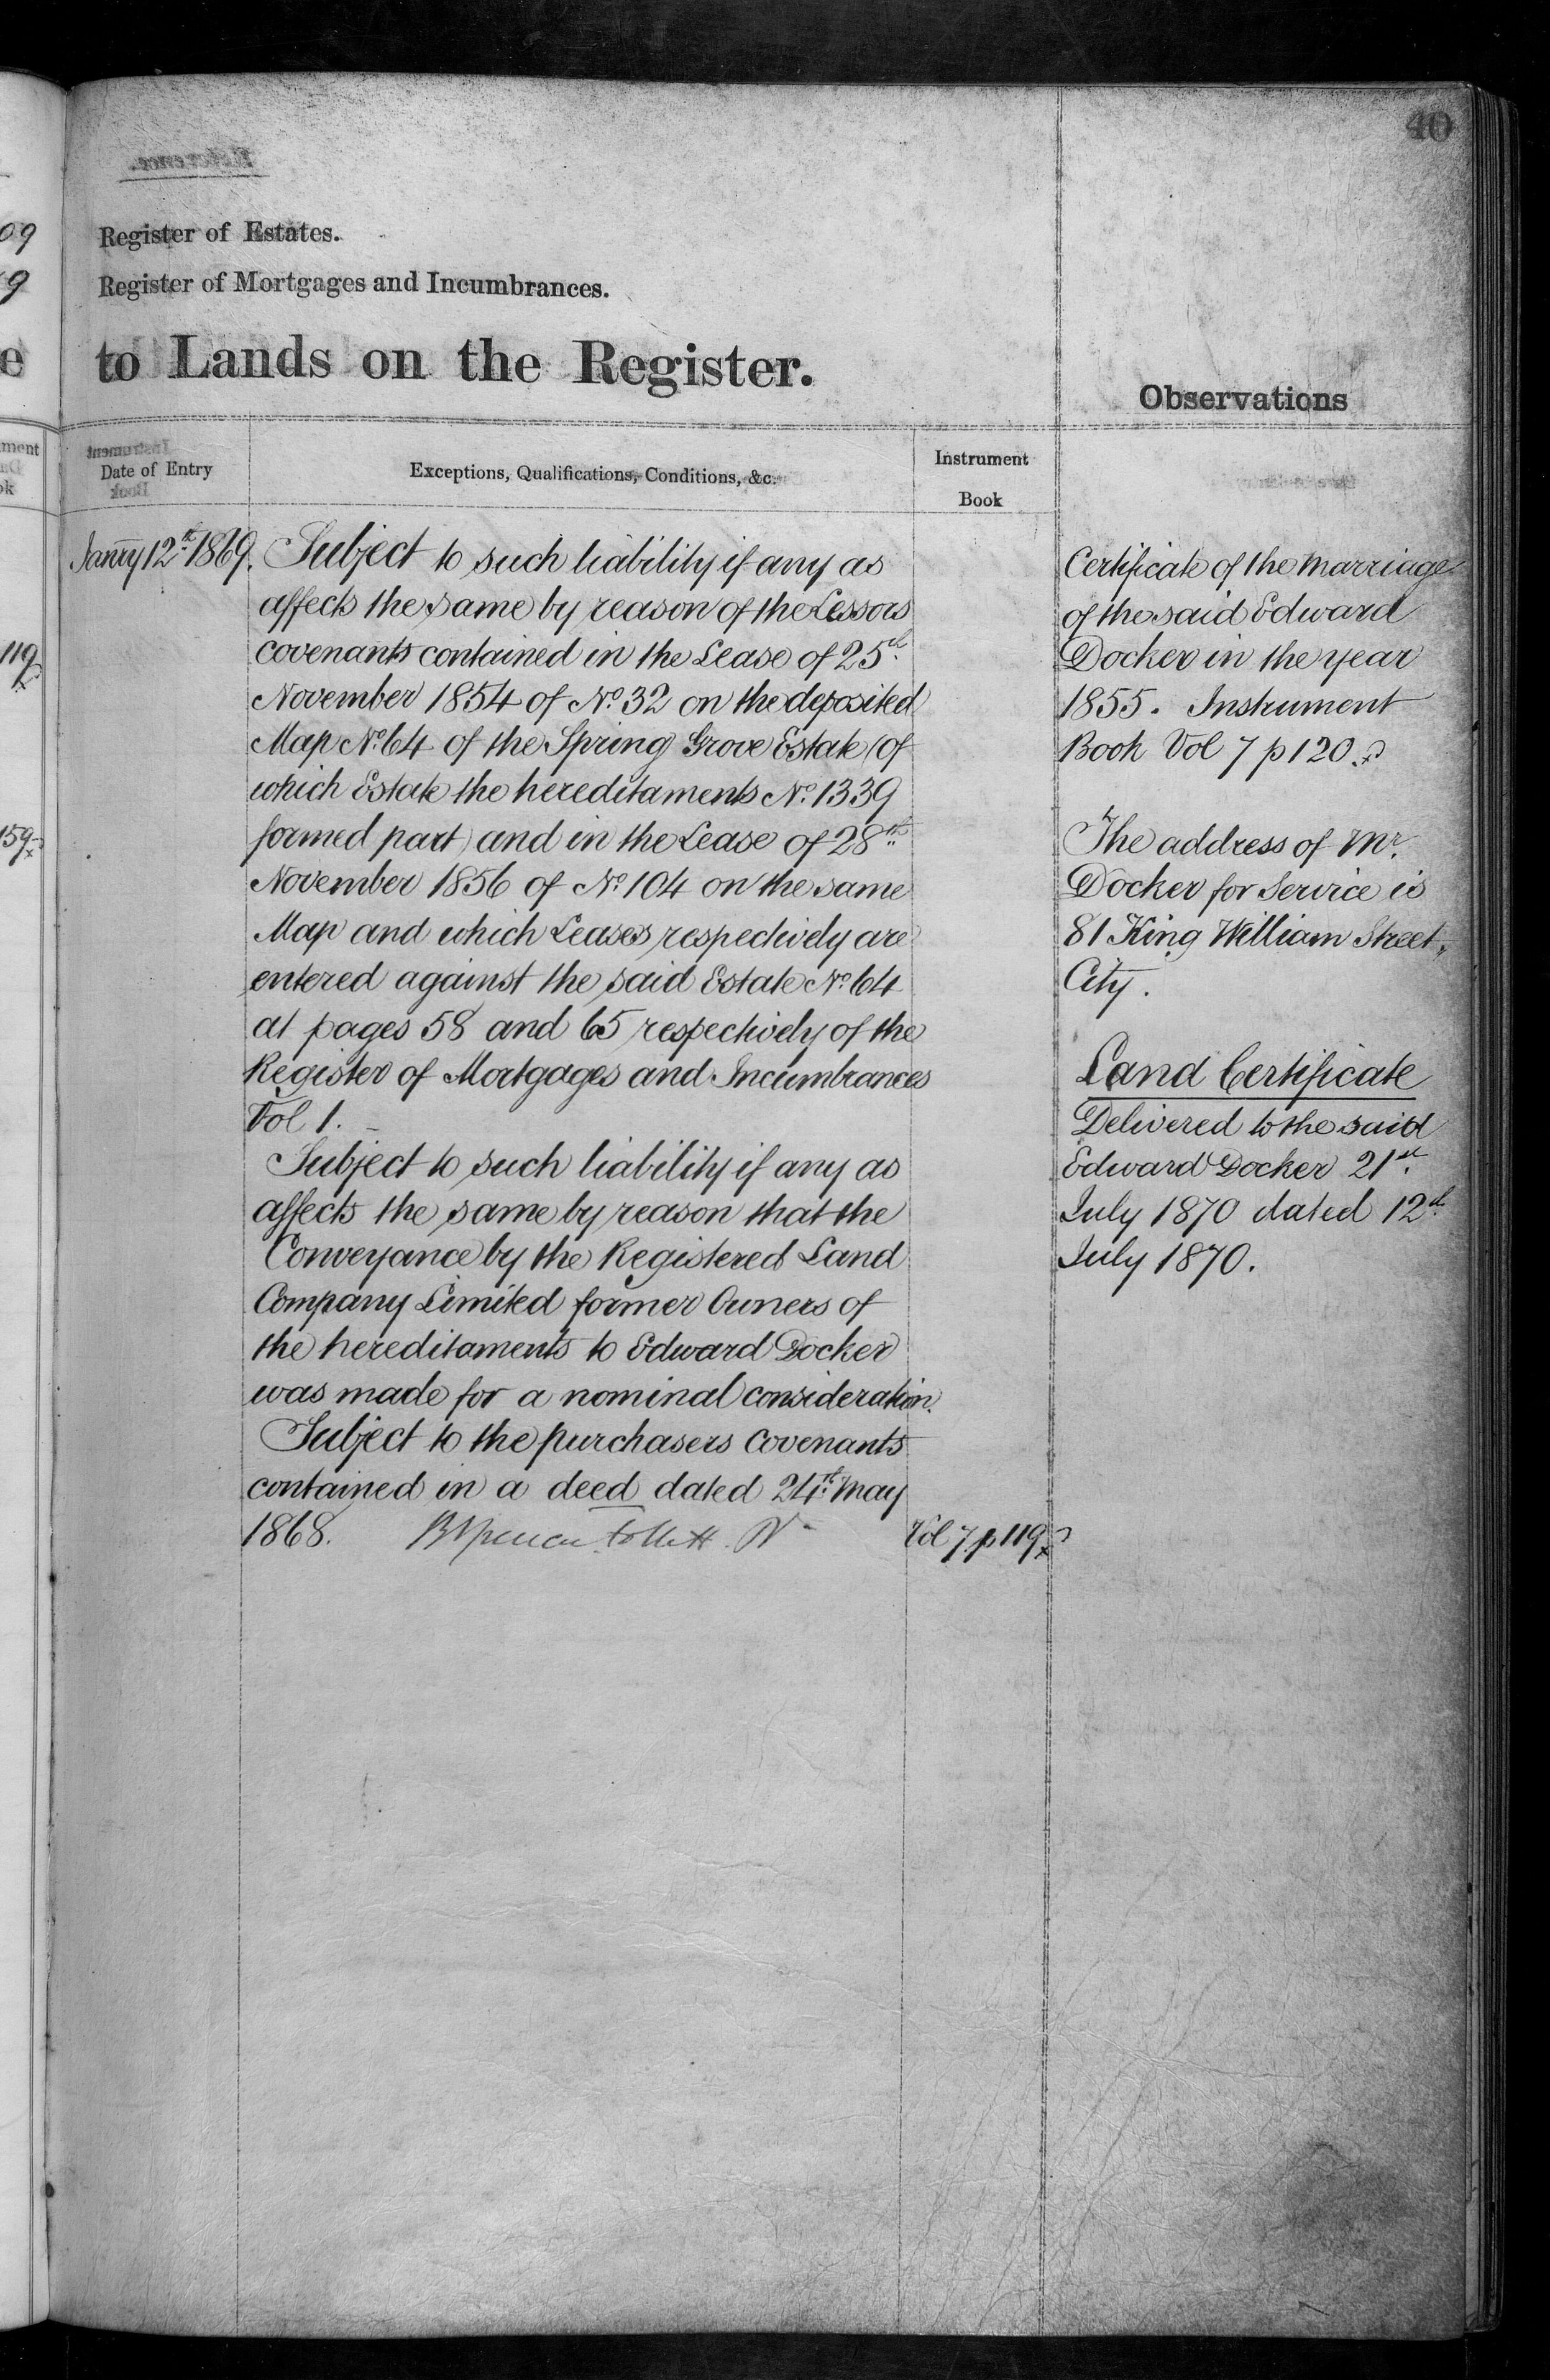 40
Register of Estates.
Register of Mortgages and Incumbrances.
to Lands on the Register.
Observations
Date of Entry
Exceptions, Qualifications, Conditions, &c.
Instrument
Book
Janry 12th 1869.
Subject to such liability if any as
affects the same by reason of the Lessors
covenants contained in the Lease of 25th
November 1854 of No. 32 on the deposited
Map No. 64 of the Spring Grove Estate (of
which Estate the hereditaments No. 1339
formed part) and in the Lease of 28th
November 1856 of No. 104 on the same
Map and which Leases respectively are
entered against the said Estate No. 64
at pages 58 and 65 respectively of the
Register of Mortgages and Incumbrances
Vol 1.
Subject to such liability if any as
affects the same by reason that the
Conveyance by the Registered Land
Company Limited former Owners of
the hereditaments to Edward Docker
was made for a nominal consideration.
Subject to the purchasers covenants
contained in a deed dated 24th May
1868.
Vol 7. p 119
Certificate of the marriage
of the said Edward
Docker in the year
1855. Instrument
Book Vol 7 p 120.
The address of Mr.
Docker for Service is
81 King William Street,
City.
Land Certificate
Delivered to the said
Edward Docker 21st
July 1870 dated 12th
July 1870.
09
9
e
ment
ok
119
159